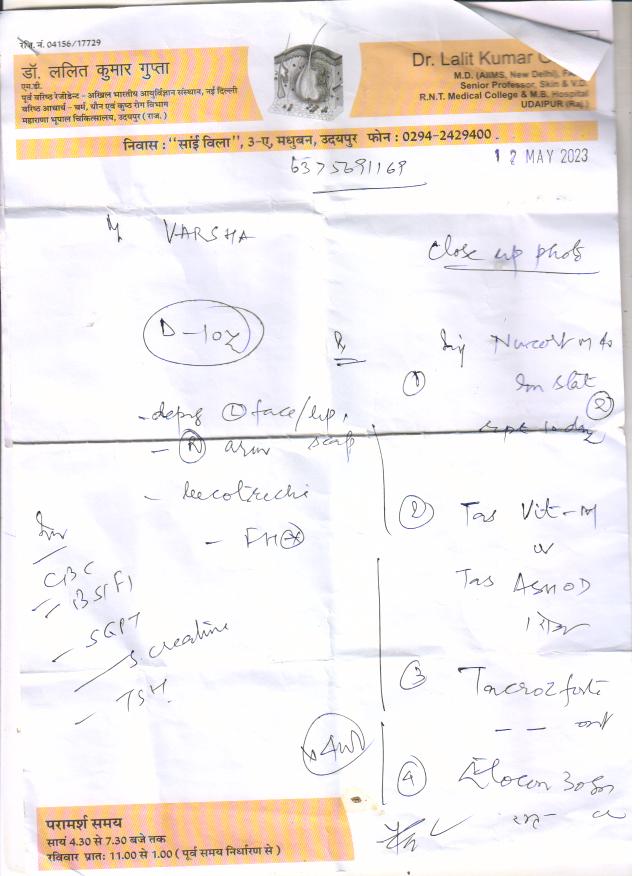 रजि. नं. 04156/17729
डॉ. ललित कुमार गुप्ता
एम.डी.
पूर्व वरिष्ठ रेजीडेन्ट - अखिल भारतीय आयुर्विज्ञान संस्थान, नई दिल्ली
वरिष्ठ आचार्य - चर्म, यौन एवं कुष्ठ रोग विभाग
महाराणा भूपाल चिकित्सालय, उदयपुर ( राज. )
Dr. Lalit Kumar
M.D. (AIIMS, New Delhi),
Senior Professor, Skin & V.D.
R.N.T. Medical College & M.B. Hospital
UDAIPUR (Raj.)
निवास : "सांई विला", 3-ए, मधुबन, उदयपुर फोन : 0294-2429400 .
6375691169
12 MAY 2023
VARSHA
Close up photo
D-10y
Rx
Inj
1
Im stat
2
- depig L face/lip,
scalp
- R arm
- leucotrichi
- FH
Inv
CBC
- BSF
- SGPT
- S. creatine
- TSH
2 Tab Vit-M
or
Tab
3 forte
- - ont
x 4w
4 Elocon
परामर्श समय
सायं 4.30 से 7.30 बजे तक
रविवार प्रात: 11.00 से 1.00 ( पूर्व समय निर्धारण से )